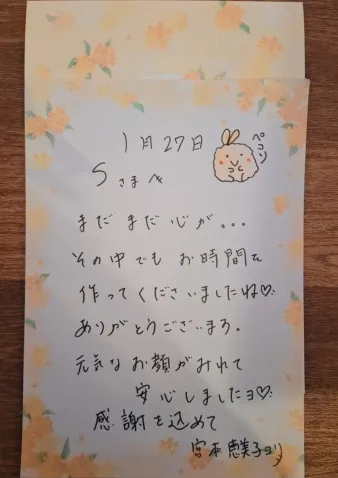 1月27日
ペコリ
Sさまへ
まだまだ心が...
その中でもお時間を
作ってくださいましたね♡
ありがとうございまろ。
元気なお顔がみれて
安心しましたヨ♡
感謝を込めて
宮本恵美子ヨリ